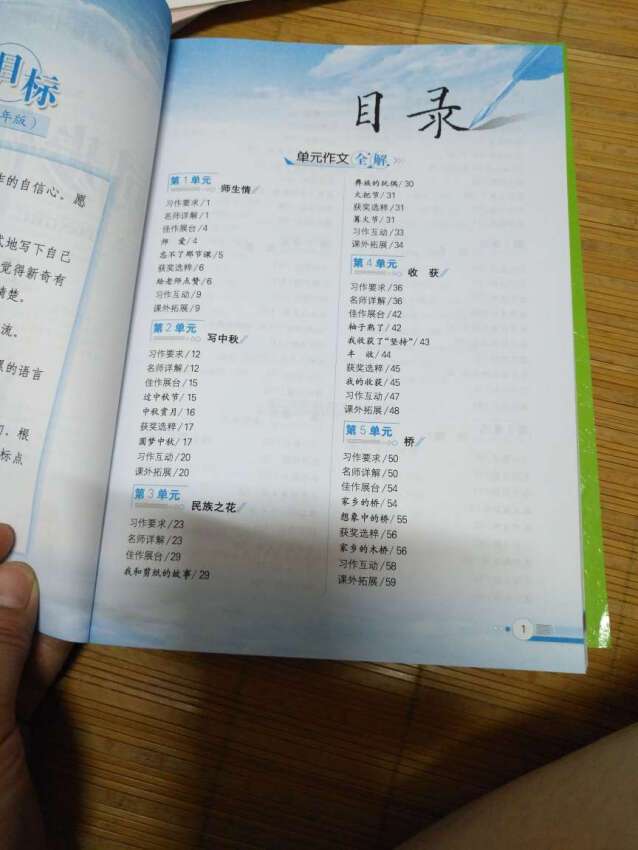 目标
年版）
作的自信心。愿
式地写下自己
觉得新奇有
清楚。
流。
累的语言
根
标点
目录
单元作文全解
第1单元 师生情
习作要求/1
名师详解/1
佳作展台/4
师 爱/4
忘不了那节课/5
获奖选粹/6
给老师点赞/6
习作互动/9
课外拓展/9
第2单元 写中秋
习作要求/12
名师详解/12
佳作展台/15
过中秋节/15
中秋赏月/16
获奖选粹/17
圆梦中秋/17
习作互动/20
课外拓展/20
第3单元 民族之花
习作要求/23
名师详解/23
佳作展台/29
我和剪纸的故事/29
彝族的玩偶/30
火把节/31
获奖选粹/31
篝火节/31
习作互动/33
课外拓展/34
第4单元 收获
习作要求/36
名师详解/36
佳作展台/42
柚子熟了/42
我收获了“坚持”/43
丰 收/44
获奖选粹/45
我的收获/45
习作互动/47
课外拓展/48
第5单元 桥
习作要求/50
名师详解/50
佳作展台/54
家乡的桥/54
想象中的桥/55
获奖选粹/56
家乡的木桥/56
习作互动/58
课外拓展/59
1